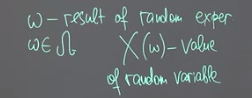 ω – result of random exper
ω ∈ Ω X(ω) – value
of random variable